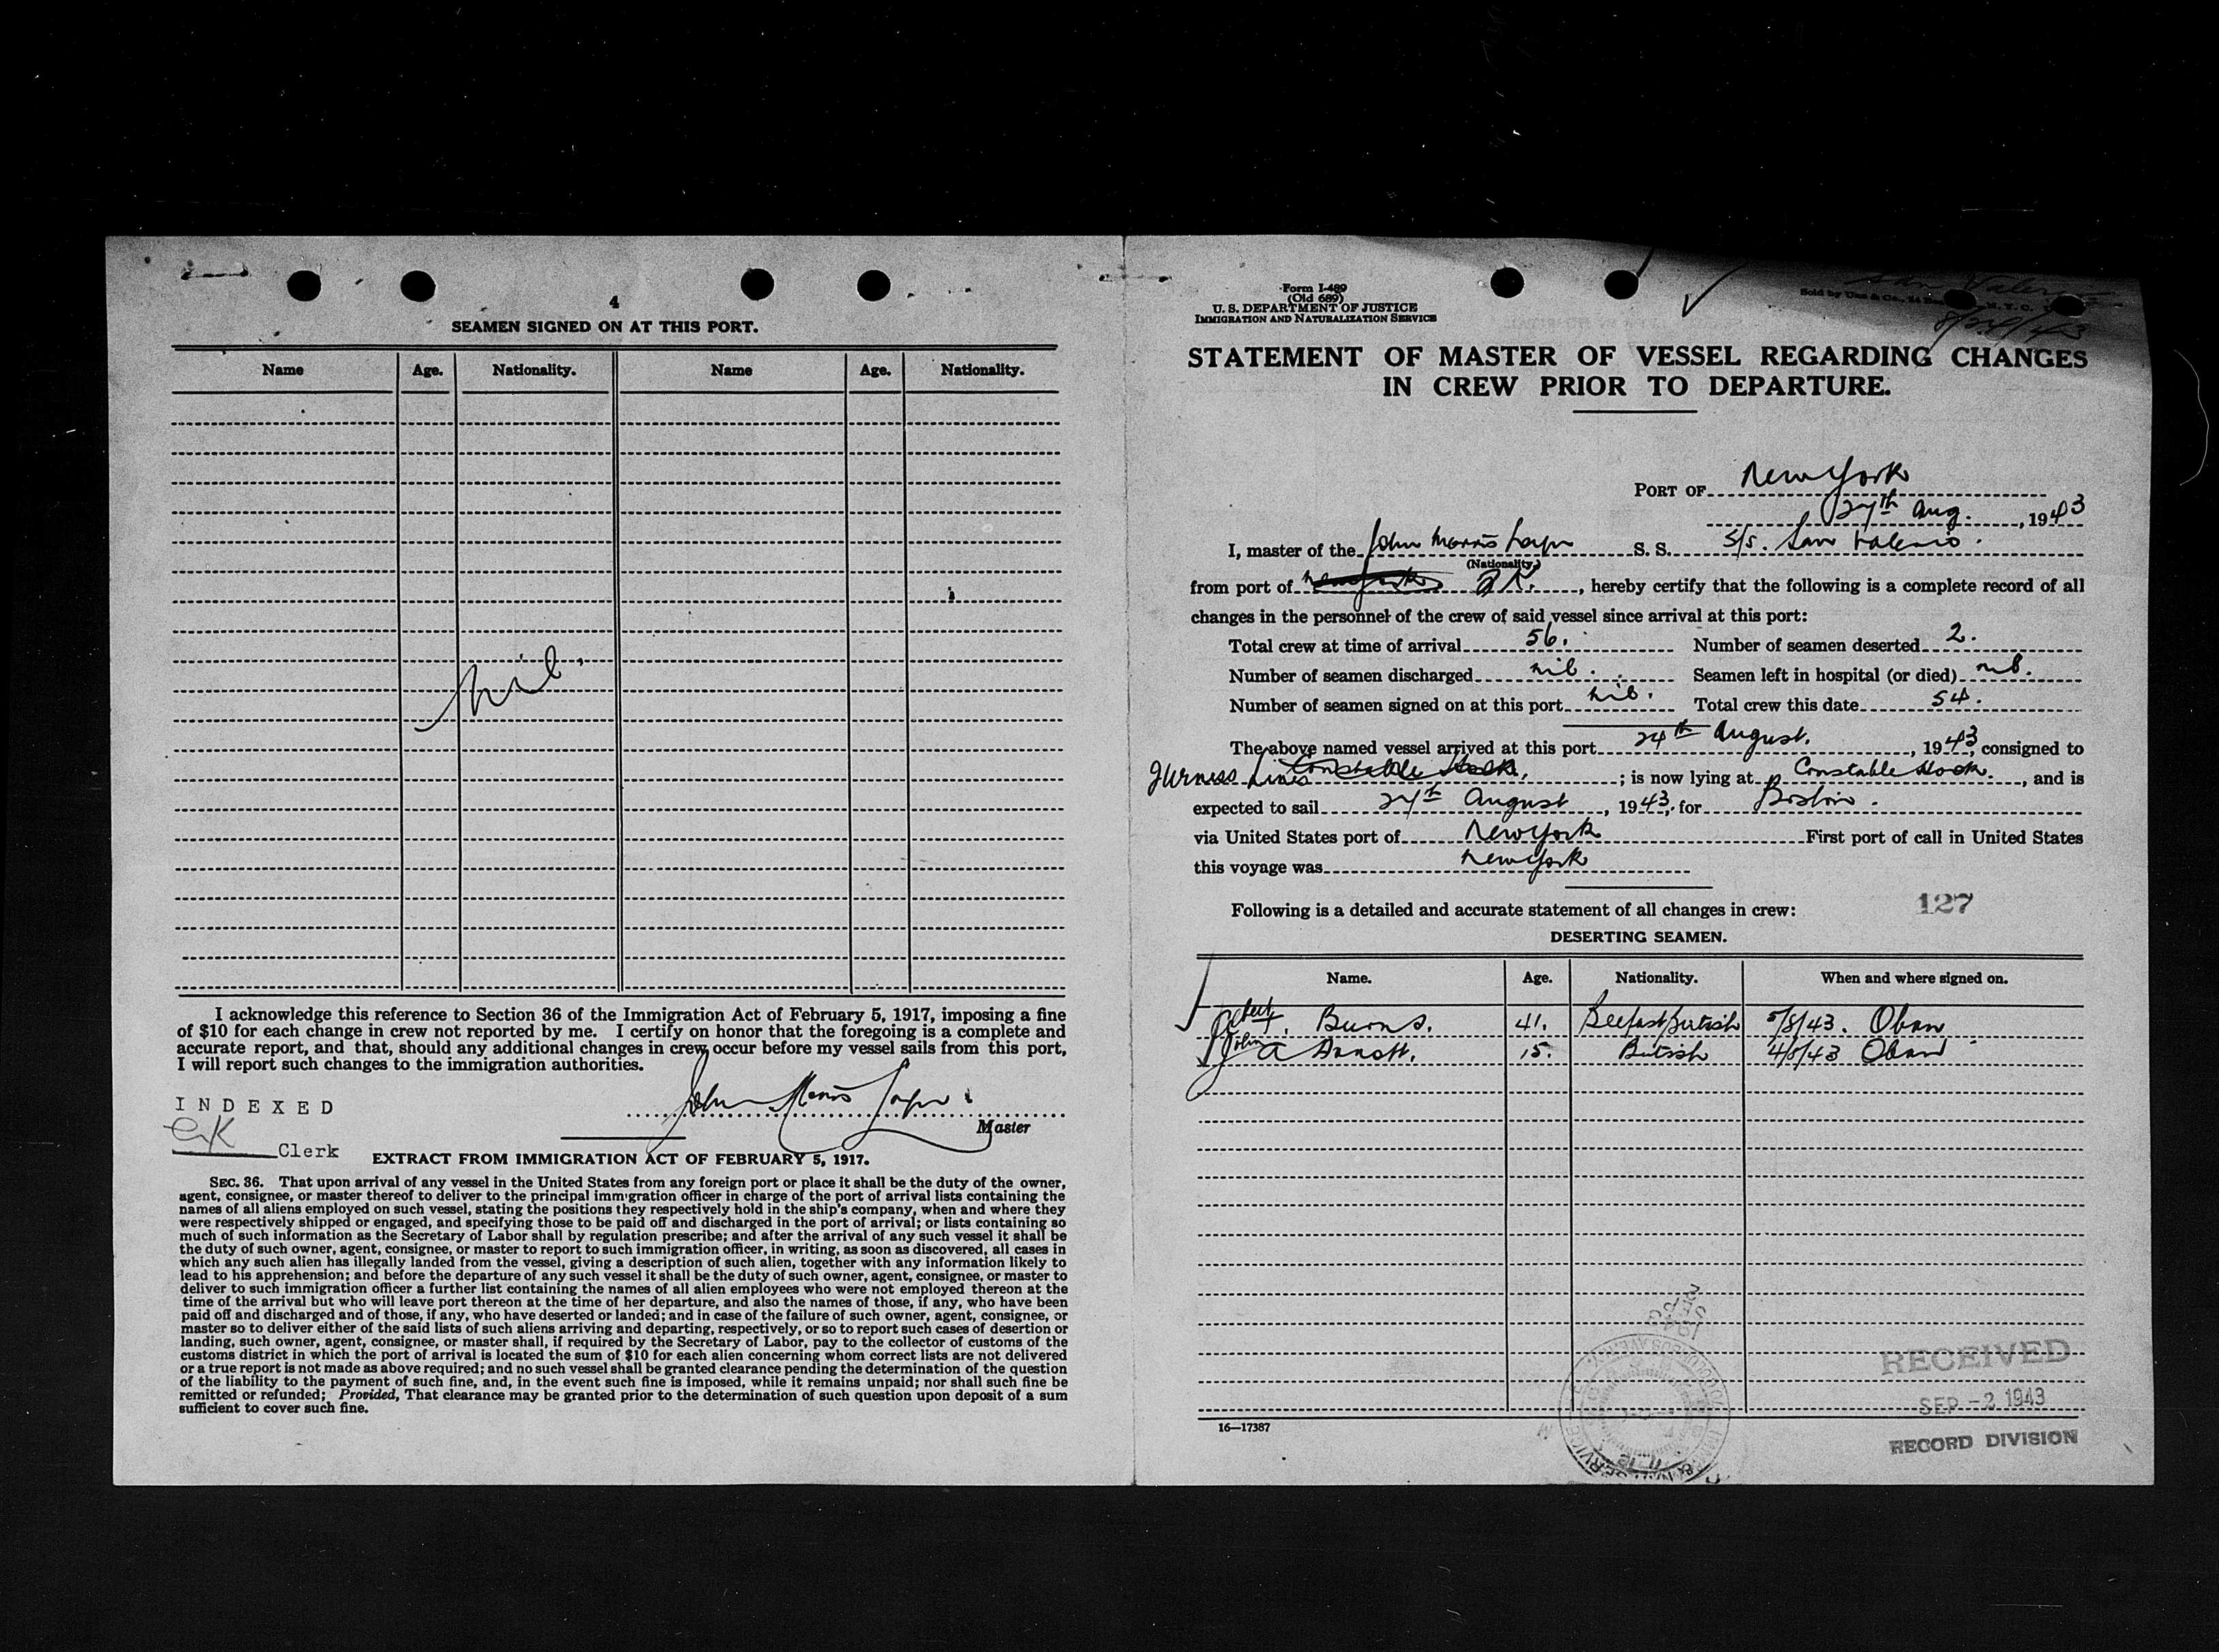 4
SEAMEN SIGNED ON AT THIS PORT.
Name Age. Nationality. Name Age. Nationality.
Nil.
I acknowledge this reference to Section 36 of the Immigration Act of February 5, 1917, imposing a fine
of $10 for each change in crew not reported by me. I certify on honor that the foregoing is a complete and
accurate report, and that, should any additional changes in crew occur before my vessel sails from this port,
I will report such changes to the immigration authorities.
INDEXED
John Morris
Master
Clerk
EXTRACT FROM IMMIGRATION ACT OF FEBRUARY 5, 1917.
SEC. 36. That upon arrival of any vessel in the United States from any foreign port or place it shall be the duty of the owner,
agent, consignee, or master thereof to deliver to the principal immigration officer in charge of the port of arrival lists containing the
names of all aliens employed on such vessel, stating the positions they respectively hold in the ship's company, when and where they
were respectively shipped or engaged, and specifying those to be paid off and discharged in the port of arrival; or lists containing so
much of such information as the Secretary of Labor shall by regulation prescribe; and after the arrival of any such vessel it shall be
the duty of such owner, agent, consignee, or master to report to such immigration officer, in writing, as soon as discovered, all cases in
which any such alien has illegally landed from the vessel, giving a description of such alien, together with any information likely to
lead to his apprehension; and before the departure of any such vessel it shall be the duty of such owner, agent, consignee, or master to
deliver to such immigration officer a further list containing the names of all alien employees who were not employed thereon at the
time of the arrival but who will leave port thereon at the time of her departure, and also the names of those, if any, who have been
paid off and discharged and of those, if any, who have deserted or landed; and in case of the failure of such owner, agent, consignee, or
master so to deliver either of the said lists of such aliens arriving and departing, respectively, or so to report such cases of desertion or
landing, such owner, agent, consignee, or master shall, if required by the Secretary of Labor, pay to the collector of customs of the
customs district in which the port of arrival is located the sum of $10 for each alien concerning whom correct lists are not delivered
or a true report is not made as above required; and no such vessel shall be granted clearance pending the determination of the question
of the liability to the payment of such fine, and, in the event such fine is imposed, while it remains unpaid; nor shall such fine be
remitted or refunded; Provided, That clearance may be granted prior to the determination of such question upon deposit of a sum
sufficient to cover such fine.
Form I-489
(Old 689)
U. S. DEPARTMENT OF JUSTICE
IMMIGRATION AND NATURALIZATION SERVICE
Sold by
STATEMENT OF MASTER OF VESSEL REGARDING CHANGES
IN CREW PRIOR TO DEPARTURE.
PORT OF New York
27th Aug., 1943
I, master of the John Morris S. S. S/S. San Valerio.
(Nationality)
from port of U.K., hereby certify that the following is a complete record of all
changes in the personnel of the crew of said vessel since arrival at this port:
Total crew at time of arrival 56. Number of seamen deserted 2.
Number of seamen discharged nil. Seamen left in hospital (or died) nil.
Number of seamen signed on at this port nil. Total crew this date 54.
The above named vessel arrived at this port 24th August, 1943, consigned to
Furness Lines Constable Hook, ; is now lying at Constable Hook., and is
expected to sail 27th August, 1943, for Boston.
via United States port of New York First port of call in United States
this voyage was New York
Following is a detailed and accurate statement of all changes in crew:
127
DESERTING SEAMEN.
Name. Age. Nationality. When and where signed on.
Burns. 41. Belfast British 5/8/43. Oban
John A Arnott. 15. British 4/8/43 Oban
1943
SEP
2
RECEIVED
SEP -2 1943
RECORD DIVISION
16—17387